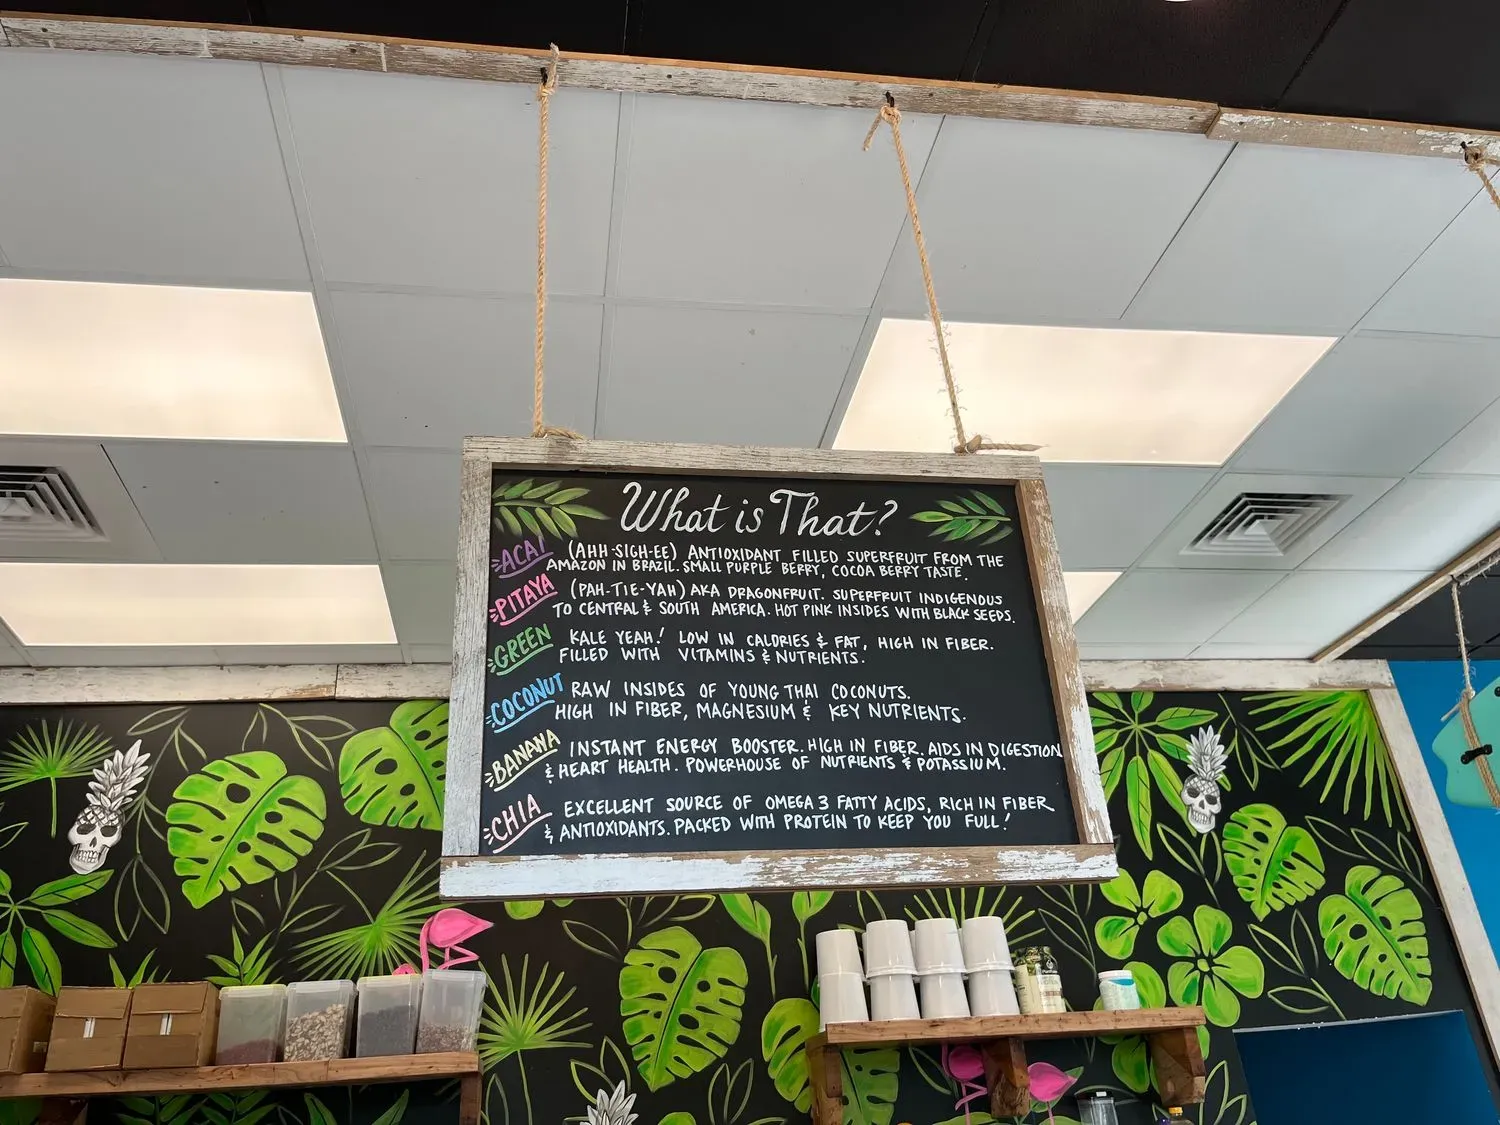 What is That?
ACAI (AHH-SIGH-EE) ANTIOXIDANT FILLED SUPERFRUIT FROM THE
AMAZON IN BRAZIL. SMALL PURPLE BERRY, COCOA BERRY TASTE.
PITAYA (PAH-TIE-YAH) AKA DRAGONFRUIT. SUPERFRUIT INDIGENOUS
TO CENTRAL & SOUTH AMERICA. HOT PINK INSIDES WITH BLACK SEEDS.
GREEN KALE YEAH! LOW IN CALORIES & FAT, HIGH IN FIBER.
FILLED WITH VITAMINS & NUTRIENTS.
COCONUT RAW INSIDES OF YOUNG THAI COCONUTS.
HIGH IN FIBER, MAGNESIUM & KEY NUTRIENTS.
BANANA INSTANT ENERGY BOOSTER. HIGH IN FIBER. AIDS IN DIGESTION
& HEART HEALTH. POWERHOUSE OF NUTRIENTS & POTASSIUM.
CHIA EXCELLENT SOURCE OF OMEGA 3 FATTY ACIDS, RICH IN FIBER
& ANTIOXIDANTS. PACKED WITH PROTEIN TO KEEP YOU FULL!